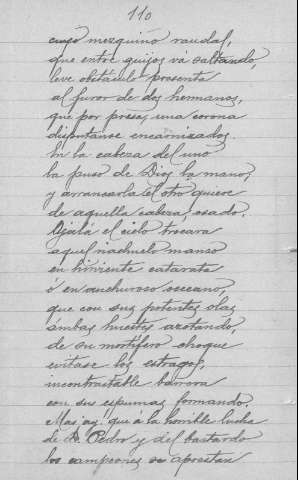 110
cuyo mezquino raudal,
que entre guijos vá saltando,
leve obstáculo presenta
al furor de dos hermanos,
que por poseer una corona
disputanse encarnizados.
En la cabeza del uno
la puso de Dios la mano,
y arrancarla el otro quiere
de aquella cabeza, osado.
Ojalá el cielo trocara
aquel riachuelo manso
en hirviente catarata
ó en anchuroso occeano,
que con sus potentes olas
ambas huestes azotando,
de su mortífero choque
evitase los estragos,
incontrastable barrera
con sus espumas formando.
Mas ay! que á la horrible lucha
de D. Pedro y del bastardo
los campeones se aprestan